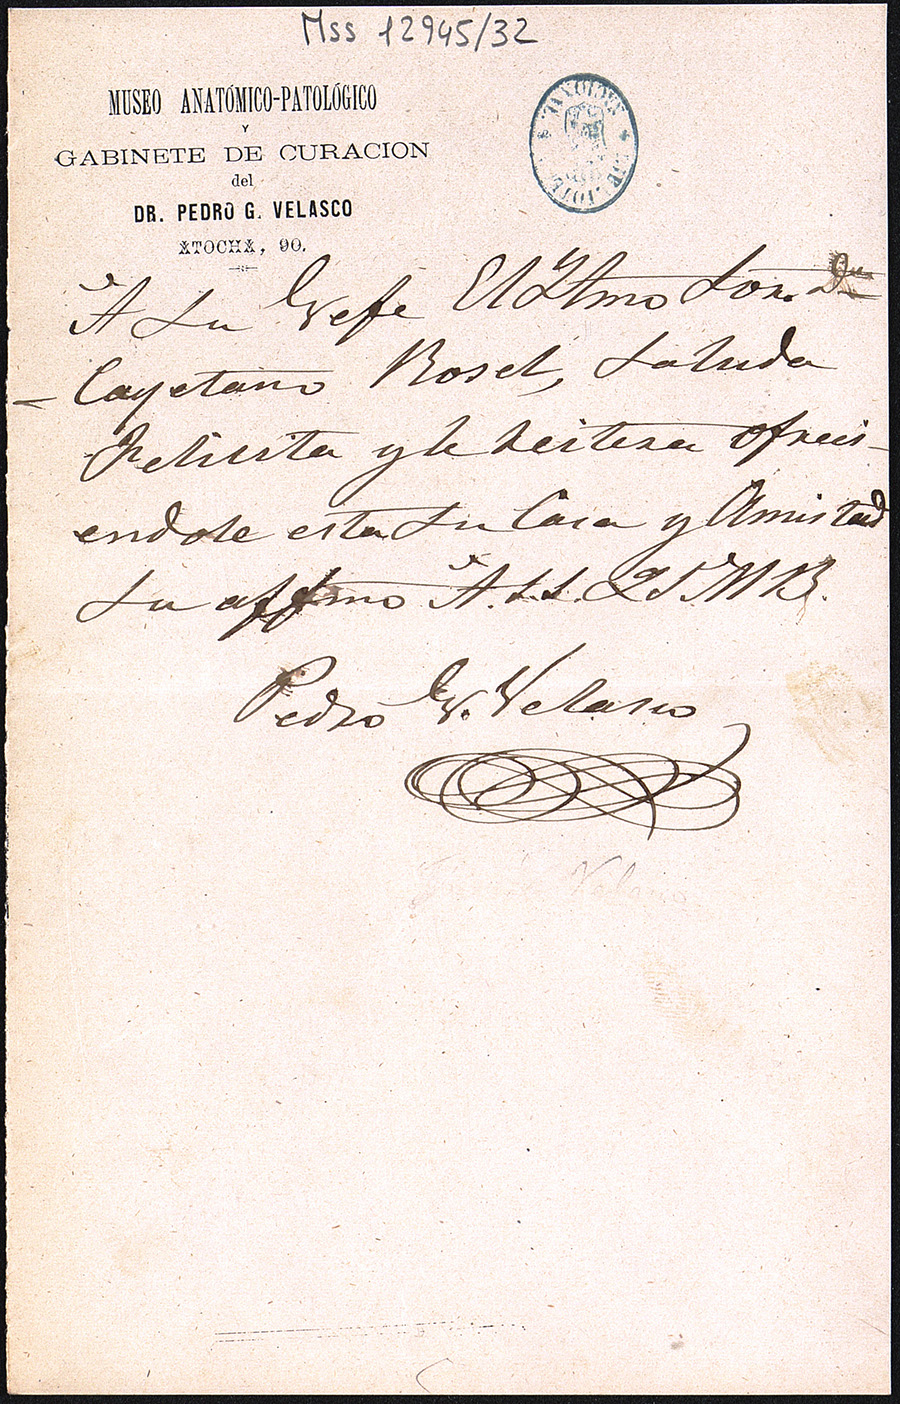 Mss 12945/32
MUSEO ANATÓMICO-PATOLÓGICO
Y
GABINETE DE CURACION
del
DR. PEDRO G. VELASCO
ATOCHA, 90.
A su Gefe El Ylmo Sor. Dn
Cayetano Rosel, saluda
Felicita y le reitera ofreci-
endole esta su Casa y Amistad
su affmo A. S.S. Q S M B.
Pedro G. Velasco
Velasco